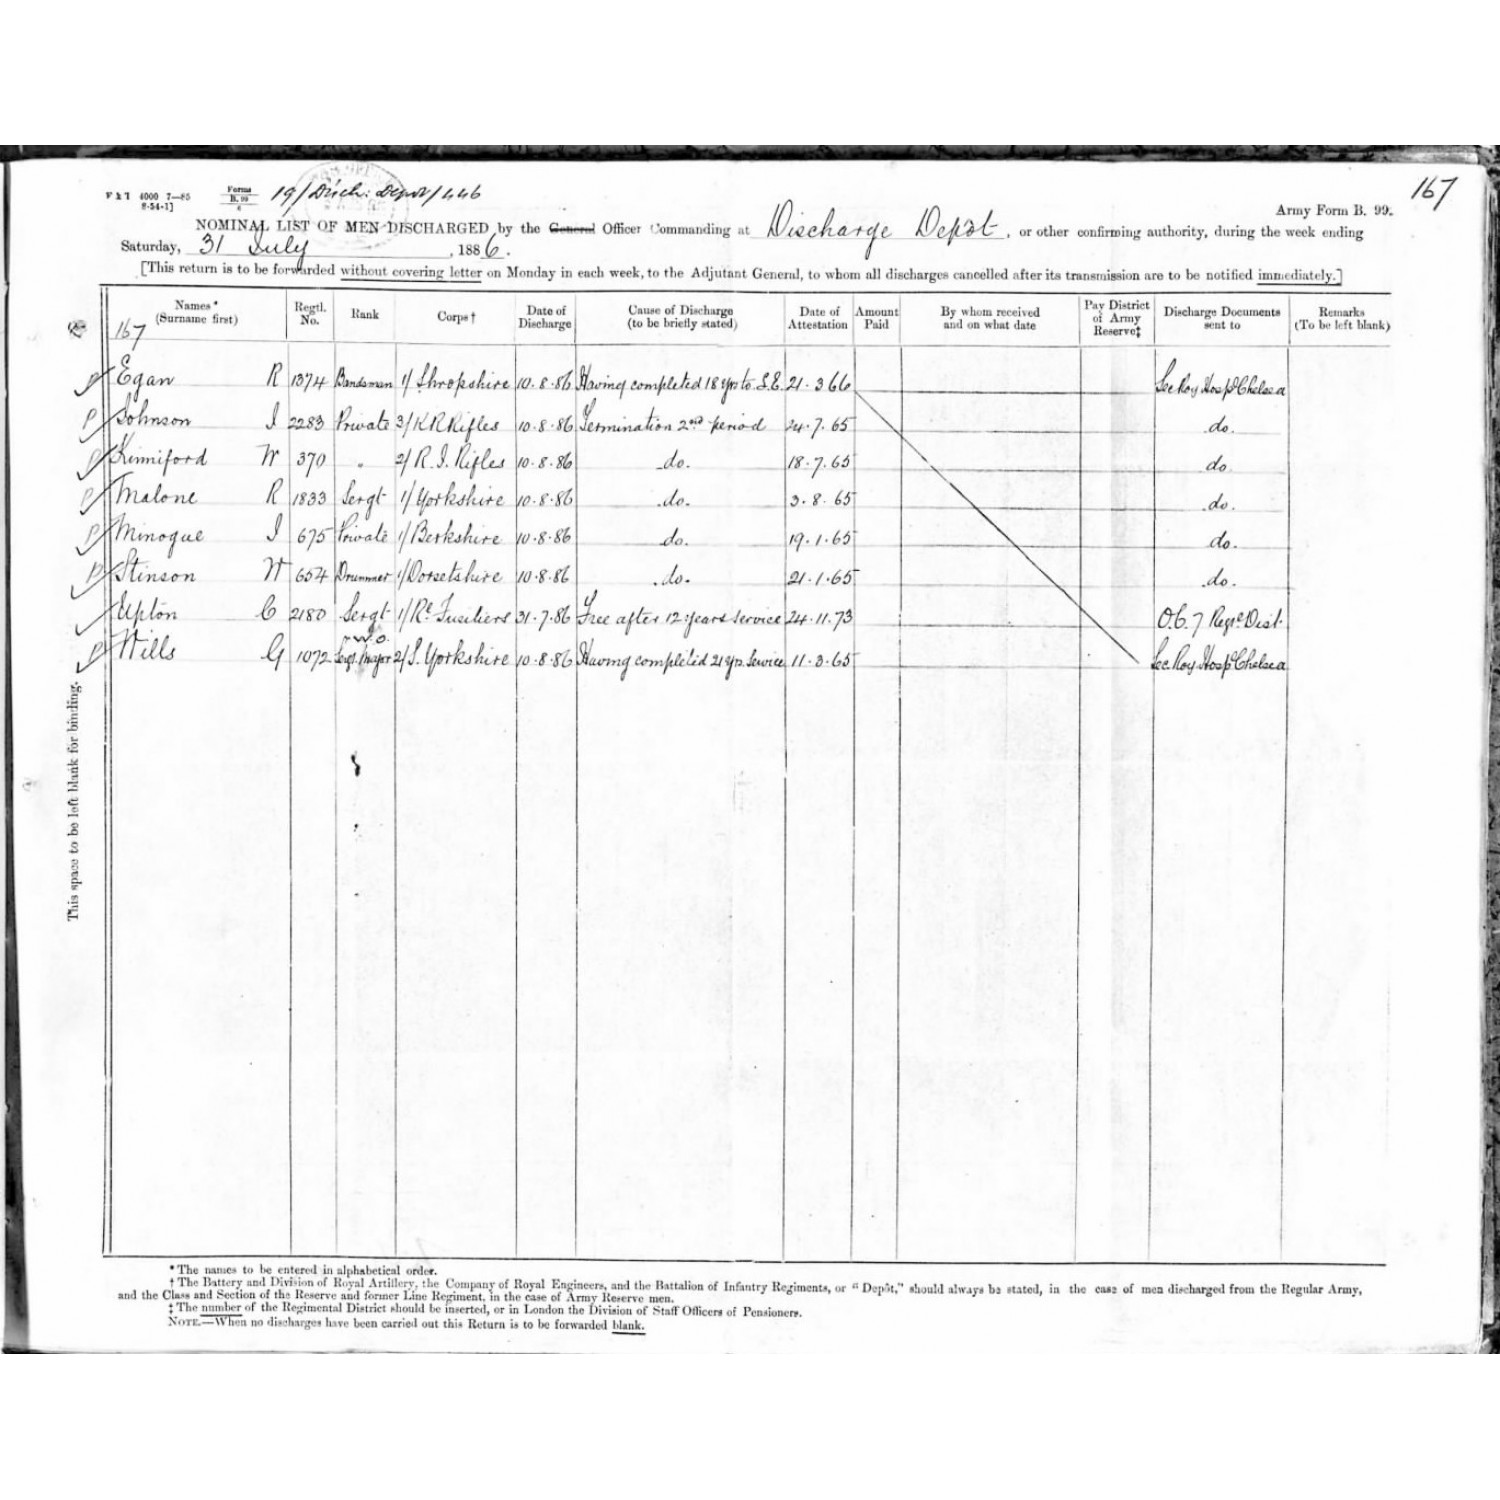 167
F & T 4000 7—85
8-54-1]
Forms
B. 99
6
19/Disch: Depot/446
Army Form B. 99.
NOMINAL LIST OF MEN DISCHARGED by the General Officer Commanding at Discharge Depôt, or other confirming authority, during the week ending
Saturday, 31 July, 1886.
[This return is to be forwarded without covering letter on Monday in each week, to the Adjutant General, to whom all discharges cancelled after its transmission are to be notified immediately.]
Names* (Surname first) Regtl. No. Rank Corps† Date of Discharge Cause of Discharge (to be briefly stated) Date of Attestation Amount Paid By whom received and on what date Pay District of Army Reserve‡ Discharge Documents sent to Remarks (To be left blank)
167
P Egan R 1374 Bandsman 1/ Shropshire 10.8.86 Having completed 18 yrs to S.E. 21.3.66 Sec Roy Hospl Chelsea
P Johnson J 2283 Private 3/ K R Rifles 10.8.86 Termination 2nd period 24.7.65 do.
P Kinniford W 370 " 2/ R. I. Rifles 10.8.86 do. 18.7.65 do
P Malone R 1833 Sergt 1/ Yorkshire 10.8.86 do. 3.8.65 do.
P Minogue J 675 Private 1/ Berkshire 10.8.86 do. 19.1.65 do.
P Stinson W 654 Drummer 1/ Dorsetshire 10.8.86 do. 21.1.65 do.
Upton C 2180 Sergt 1/ Rl. Fusiliers 31.7.86 Free after 12 years service 24.11.73 O.C. 7 Regl. Dist.
P Wills G 1072 W.O. Sergt. Major 2/ S. Yorkshire 10.8.86 Having completed 21 yrs. Service 11.3.65 Sec. Roy. Hospl Chelsea
This space to be left blank for binding.
* The names to be entered in alphabetical order.
† The Battery and Division of Royal Artillery, the Company of Royal Engineers, and the Battalion of Infantry Regiments, or “Depôt,” should always be stated, in the case of men discharged from the Regular Army,
and the Class and Section of the Reserve and former Line Regiment, in the case of Army Reserve men.
‡ The number of the Regimental District should be inserted, or in London the Division of Staff Officers of Pensioners.
NOTE.—When no discharges have been carried out this Return is to be forwarded blank.